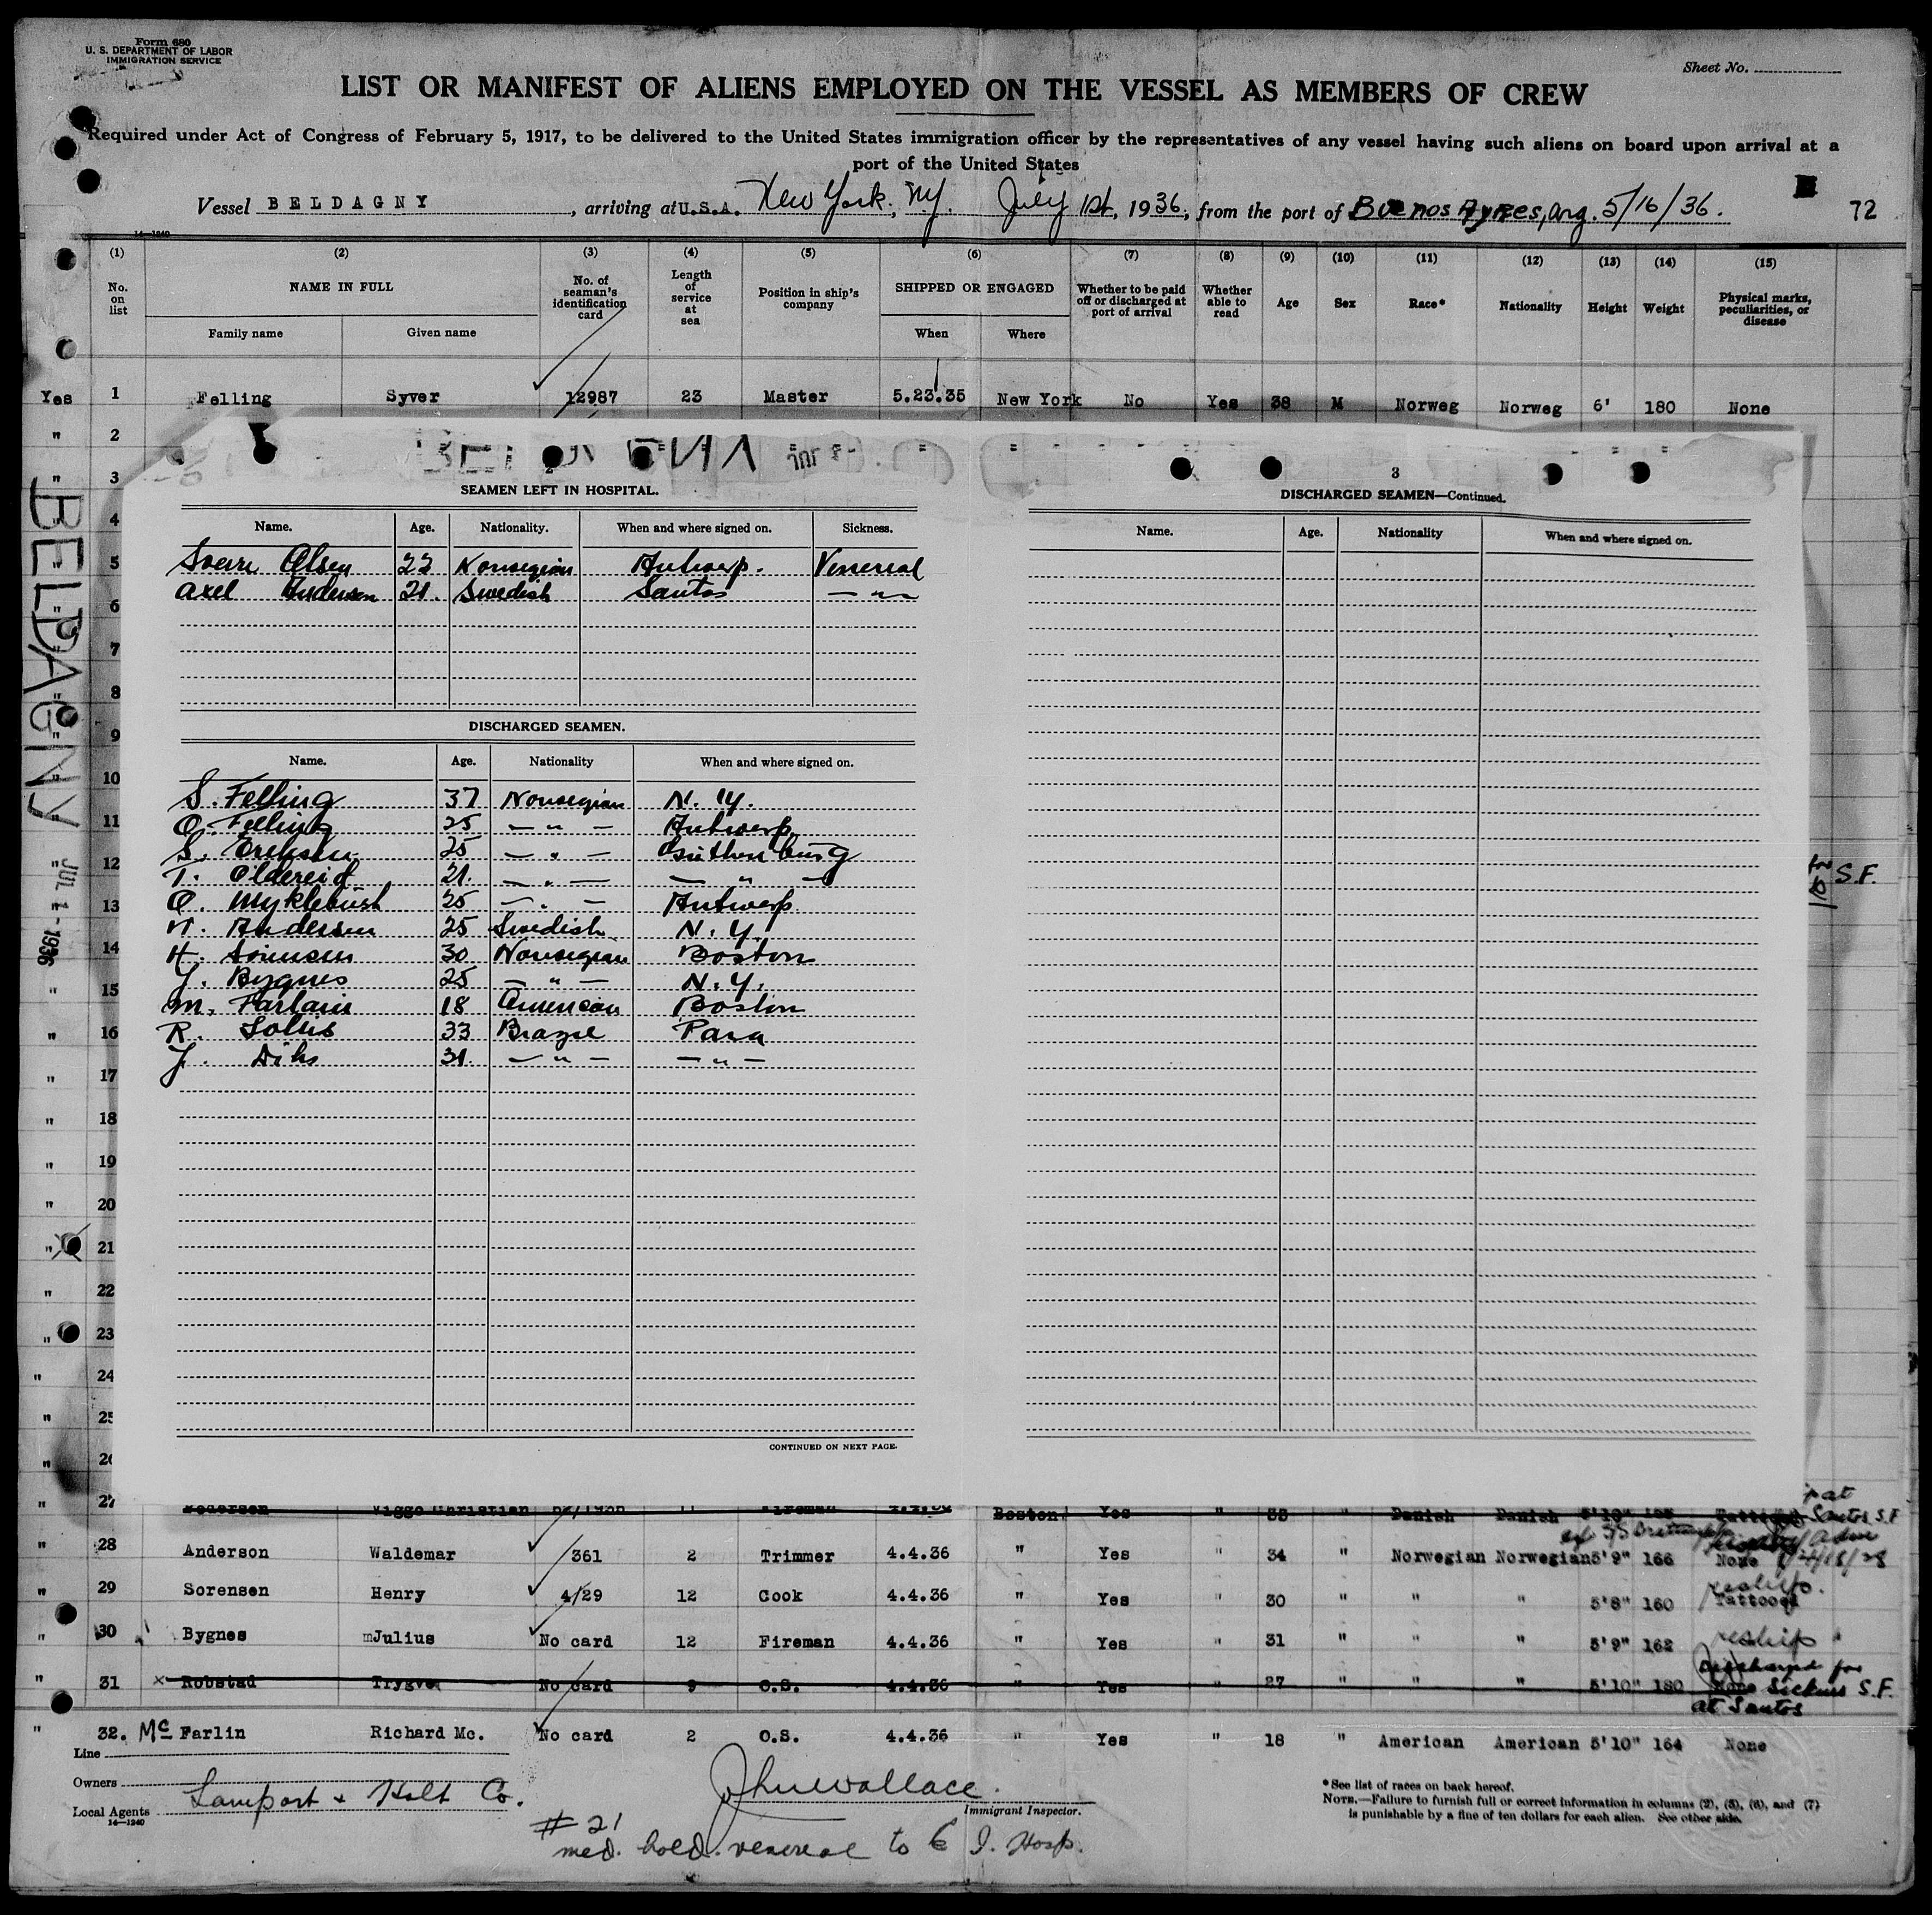 Form 680
U. S. DEPARTMENT OF LABOR
IMMIGRATION SERVICE
Sheet No.
LIST OR MANIFEST OF ALIENS EMPLOYED ON THE VESSEL AS MEMBERS OF CREW
Required under Act of Congress of February 5, 1917, to be delivered to the United States immigration officer by the representatives of any vessel having such aliens on board upon arrival at a
port of the United States
Vessel BELDAGNY, arriving at U.S.A. New York, N.Y. July 1st, 1936, from the port of Buenos Ayres, Arg. 5/16/36. 72
14—1240
(1) (2) (3) (4) (5) (6) (7) (8) (9) (10) (11) (12) (13) (14) (15)
No. on list NAME IN FULL No. of seaman's identification card Length of service at sea Position in ship's company SHIPPED OR ENGAGED Whether to be paid off or discharged at port of arrival Whether able to read Age Sex Race* Nationality Height Weight Physical marks, peculiarities, or disease
Family name Given name When Where
Yes 1 Felling Syver 12987 23 Master 5.23.35 New York No Yes 38 M Norweg Norweg 6' 180 None
" 2
" 3
4
5
6
7
8
9
10
11
12
13
14
15
16
17
18
19
20
21
22
23
24
25
BELDAGNY JUL 1-1936
S.F.
2
SEAMEN LEFT IN HOSPITAL.
Name. Age. Nationality. When and where signed on. Sickness.
Olsen 22 Norwegian Antwerp. Venereal
Axel Andersen 21. Swedish Santos — " —
DISCHARGED SEAMEN.
Name. Age. Nationality When and where signed on.
S. Felling 37 Norwegian N.Y.
O. Felling 25 — " — Antwerp
S. Eriksen 25 — " — Guthenburg
T. Oldereid 21. — " — — " —
O. Myklebust 25 — " — Antwerp
Andersen 25 Swedish N.Y.
H. Sörensen 30 Norwegian Boston
J. Bygnes 25 — " — N.Y.
M. Farlain 18 American Boston
R. 33 Brazil Para
J. 31. — " — — " —
CONTINUED ON NEXT PAGE.
3
DISCHARGED SEAMEN—Continued.
Name. Age. Nationality When and where signed on.
" 27 Pedersen Viggo Christian Fireman 4.4.36 Boston Yes " 33 " Danish Danish 5'10" Santos S.F.
" 28 Anderson Waldemar 361 2 Trimmer 4.4.36 " Yes " 34 " Norwegian Norwegian 5'9" 166 None
" 29 Sorensen Henry 4/29 12 Cook 4.4.36 " Yes " 30 " " " 5'8" 160 Tattooed reship.
" 30 Bygnes Julius No card 12 Fireman 4.4.36 " Yes " 31 " " " 5'9" 162 reship
" 31 x Robstad Trygve No card 9 O.S. 4.4.36 " Yes " 27 " " " 5'10" 180 Discharged for Sickness S.F. at Santos
" 32. Mc Farlin Richard Mc. No card 2 O.S. 4.4.36 " Yes " 18 " American American 5'10" 164 None
Line
Owners
Local Agents Lamport & Holt Co.
14—1240
John Wallace.
Immigrant Inspector.
*See list of races on back hereof.
NOTE.—Failure to furnish full or correct information in columns (2), (5), (6), and (7)
is punishable by a fine of ten dollars for each alien. See other side.
# 21
med. hold. venereal to E I. Hosp.